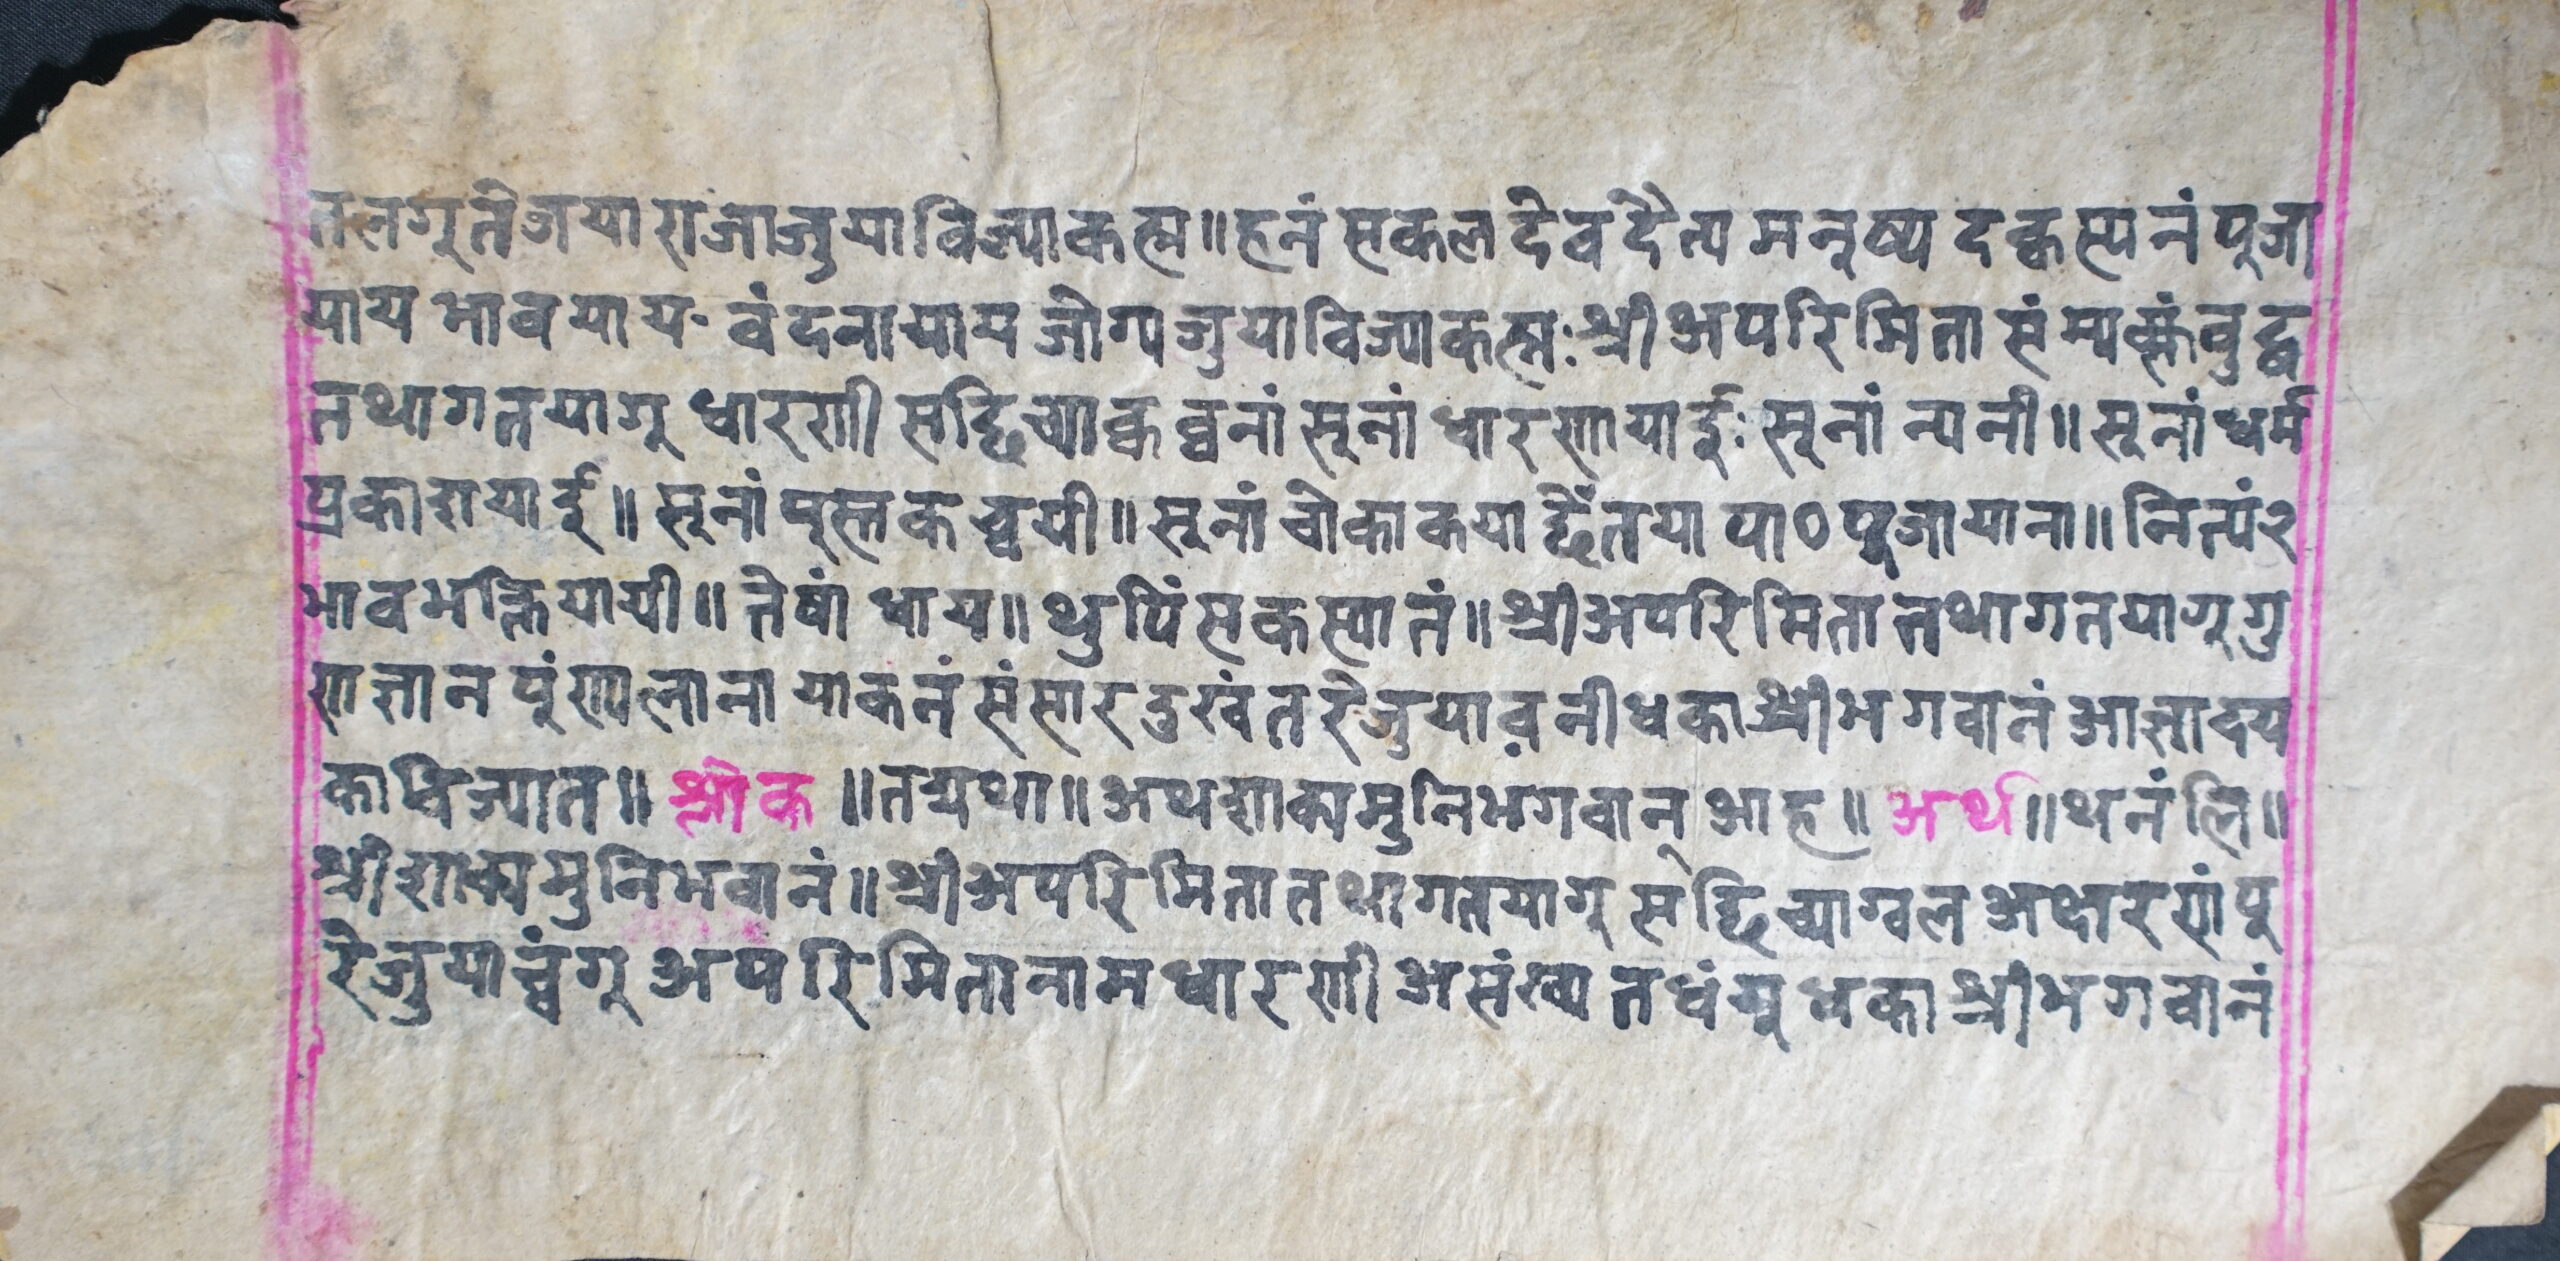 तलगू तेजया राजा जुया विज्याकह्म॥ हनं सकल देव दैत्य मनूष्य दक्वस्यनं पूजा
याय भाव याय वंदना यायाय जोग्य जुया विज्याकह्म: श्री अपरिमिता संम्यक्संबुद्ध
तथागतयागू धारणी सद्धि च्याक्व व्वनां सूनां धारणायाई: सूनां न्यनी॥ सूनां धर्म
प्रकाशयाई॥ सूनां पूस्तक च्वयी॥ सूनां चोकाकया द्वैंतया पाठ पूजायाना॥ नित्यं२
भाव भक्ति यायी॥ तेषां धाय॥ थुपिं सकस्यानं॥ श्री अपरिमिता तथागतयागू गु
ण ज्ञान पूंण्य लाना याकनं संसार दुखं तरे जुया वनी धका श्रीभगवानं आज्ञा दय
का विज्यात॥ श्लोक ॥ तद्यथा॥ अथ शाक्यमुनि भगवान् आह॥ अर्थ॥ थनंलि॥
श्री शाक्यमुनि भवानं॥ श्री अपरिमिता तथागतयागू सद्धि च्याग्वल अक्षरणं पू
रे जुया च्वंगू अपरिमिता नाम धारणी असंख्यत धंयू धका श्रीभगवानं